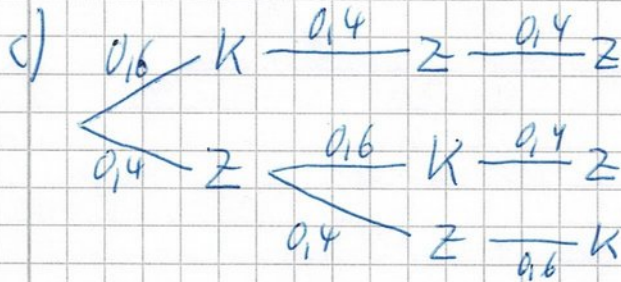 c) 0,6 K 0,4 Z 0,4 Z
0,4 Z 0,6 K 0,4 Z
0,4 Z 0,6 K